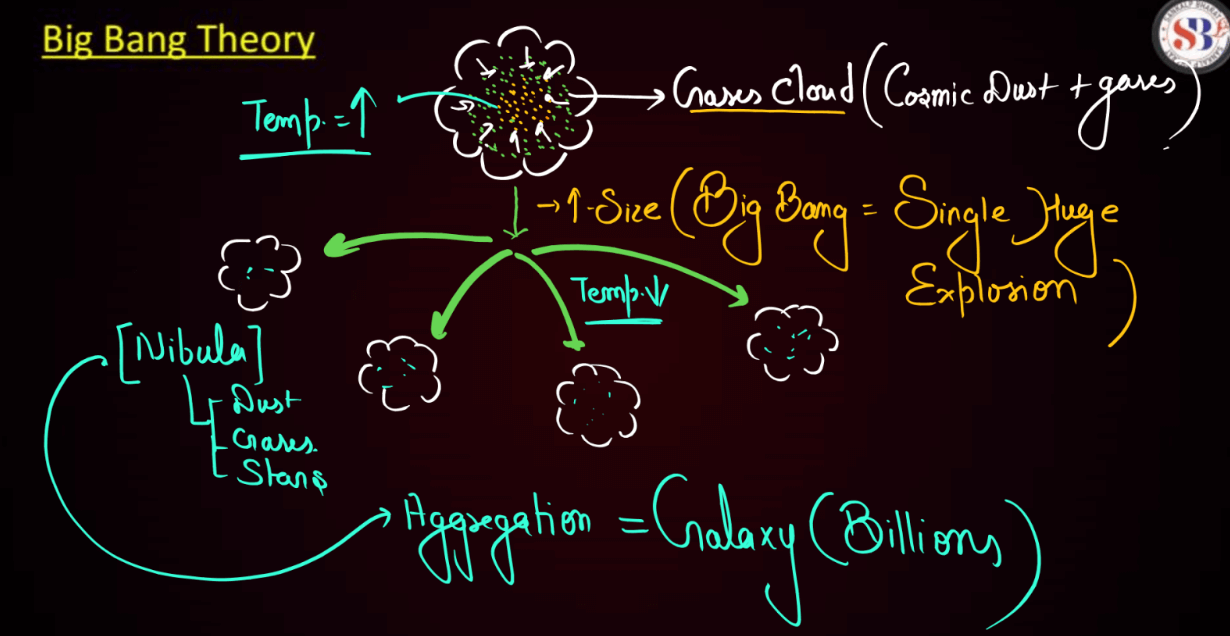 Big Bang Theory
SB
Temp. = ↑
Gases Cloud (Cosmic Dust + gases)
→ ↑ Size (Big Bang = Single Huge
Explosion)
Temp. ↓
[Nibula]
Dust
Gases.
Stars
Aggregation = Galaxy (Billions)